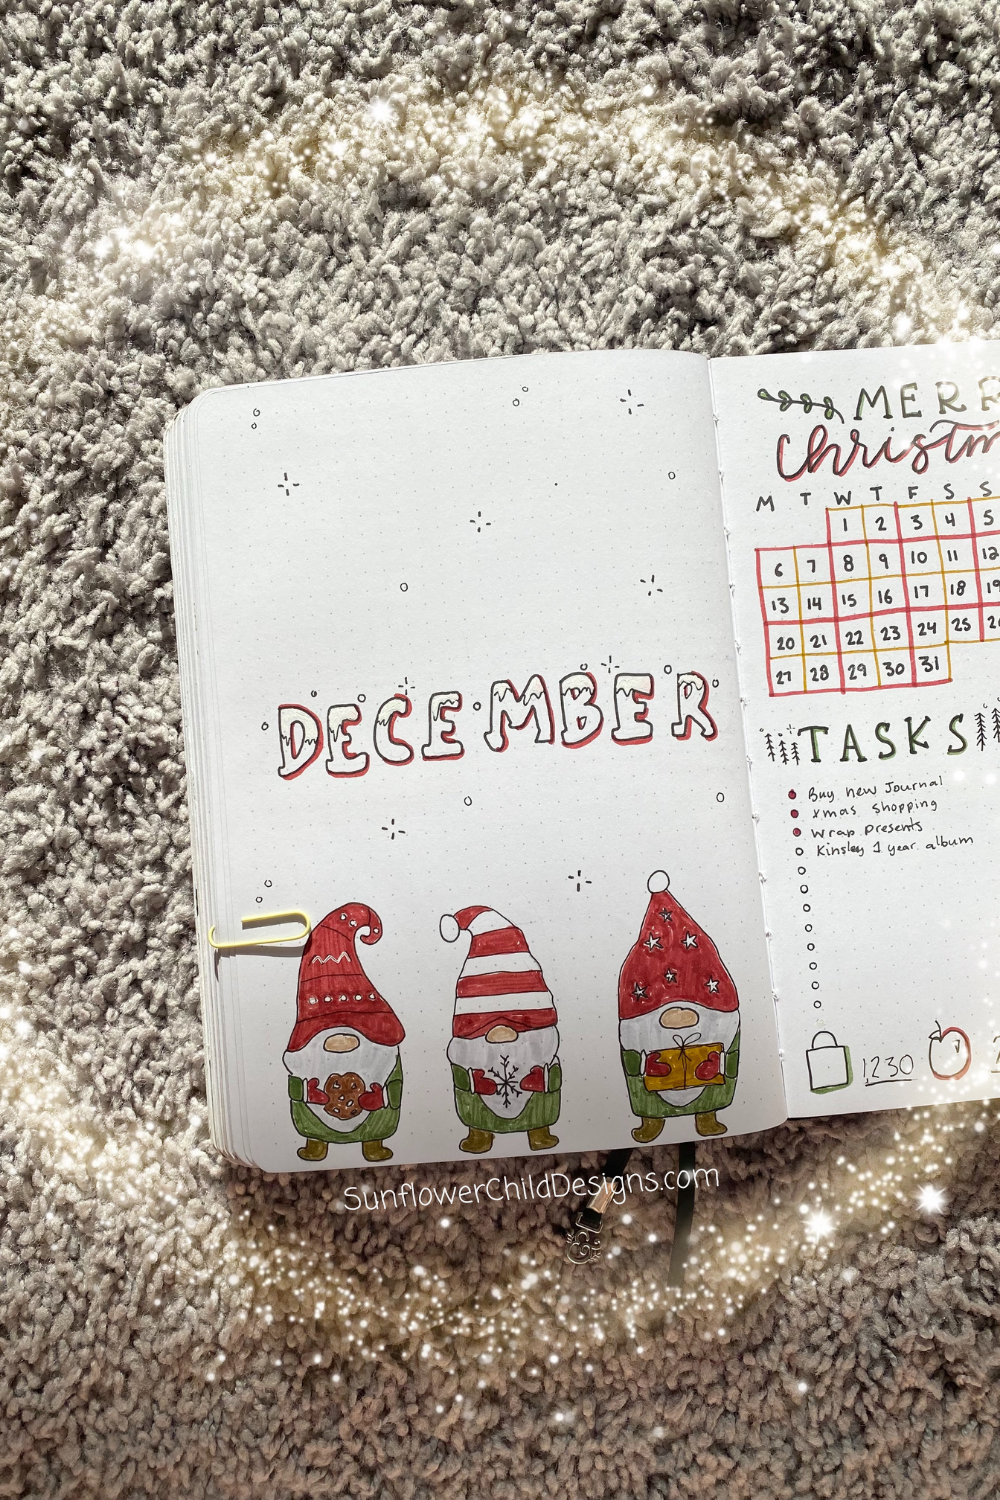 DECEMBER
MERR
Christm
M T W T F S S
1 2 3 4 5
6 7 8 9 10 11 12
13 14 15 16 17 18 19
20 21 22 23 24 25 2
27 28 29 30 31
TASKS
Buy new Journal
Xmas Shopping
Wrap Presents
Kinsley 1 year album
1230
SunflowerChildDesigns.com